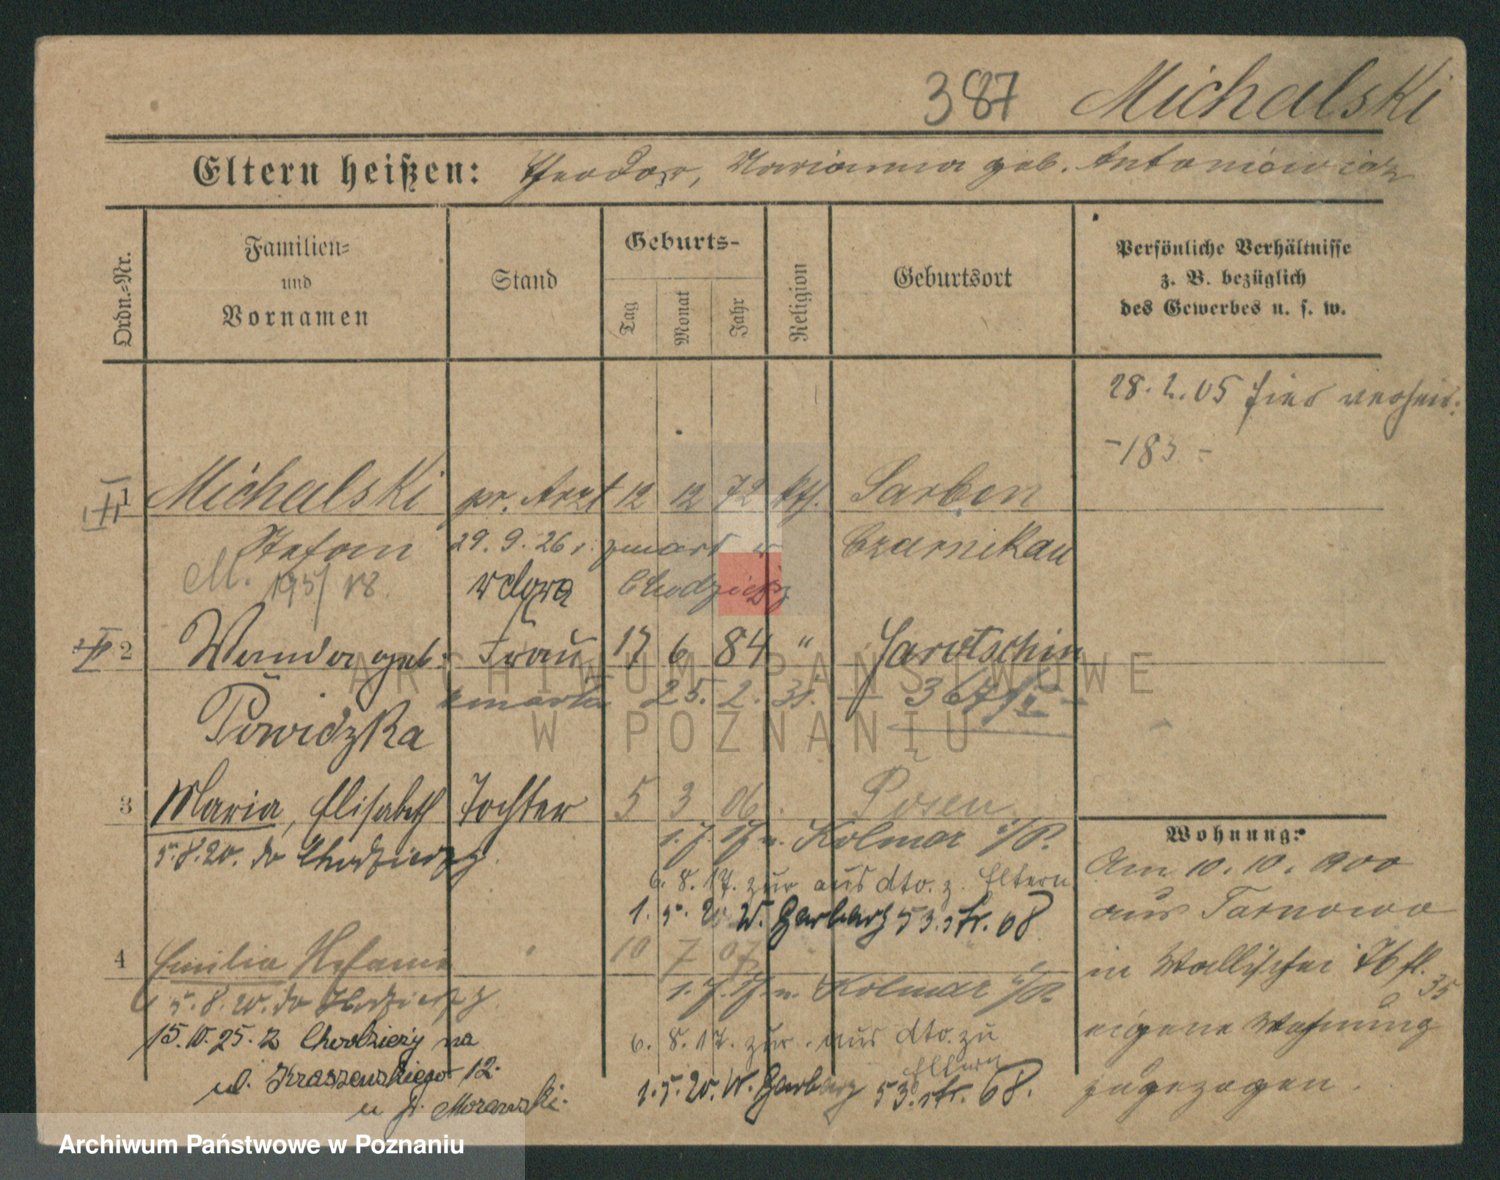 387 Michalski
Eltern heißen: Theodor, Marianna geb. Antoniewicz
Ordn.-Nr.
Familien-
und
Vornamen
Stand
Geburts-
Tag
Monat
Jahr
Religion
Geburtsort
Persönliche Verhältnisse
z. B. bezüglich
des Gewerbes u. s. w.
28. 2. 05 hier verheir.
- 183 -
1 Michalski pr. Arzt 12 12 72 kth. Sarben
Stefan 29. 9. 26 r. zmarł w Czarnikau
M. 195/18. Chodzież
2 Wanda geb. Frau 17 6 84 " Jarotschin
zmarła 25. 2. 31. 367/
Powidzka
3 Maria, Elisabeth Tochter 5 3 06 Posen
1. 7. 17 n. Kolmar i/P.
5. 8. 20. do Chodzieży
6. 8. 17. zur. aus dto. z. Eltern
1. 5. 20 W. Garbary 53. str. 68
4 Emilia Stefania 10 7 07
1. 7. 17 n. Kolmar i/P.
5. 8. 20. do Chodzieży
6. 8. 17. zur. aus dto. zu
Eltern
15. 10. 25. z Chodzieży na
ul. Kraszewskiego 12.
u Morawski.
1. 5. 20. W. Garbary 53. str. 68.
Wohnung:
Am 10. 10. 1900
aus Tarnowo
in Wallischei 76 fl. 35
eigene Wohnung
zugezogen.
ARCHIWUM PAŃSTWOWE
W POZNANIU
Archiwum Państwowe w Poznaniu